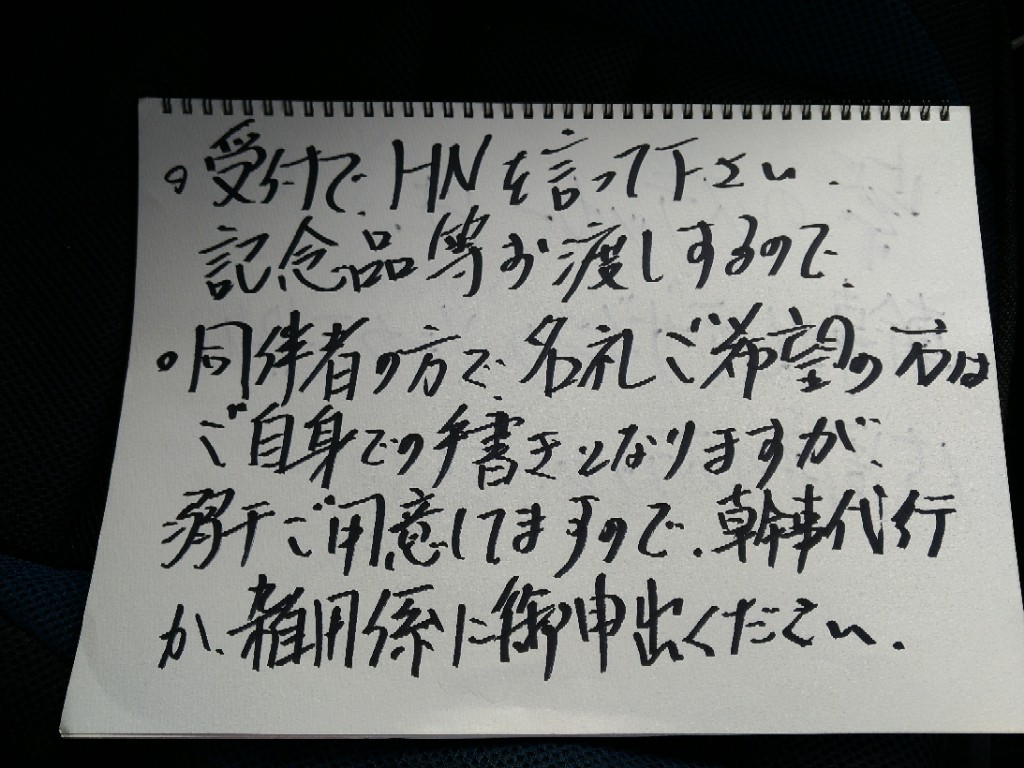 。受付で、HNを言って下さい.
記念品等お渡しするので、
。同伴者の方で、名札ご希望の方は
ご自身での手書きとなりますが、
若干ご用意してますので、幹事代行
か、雑用係に御申出ください.